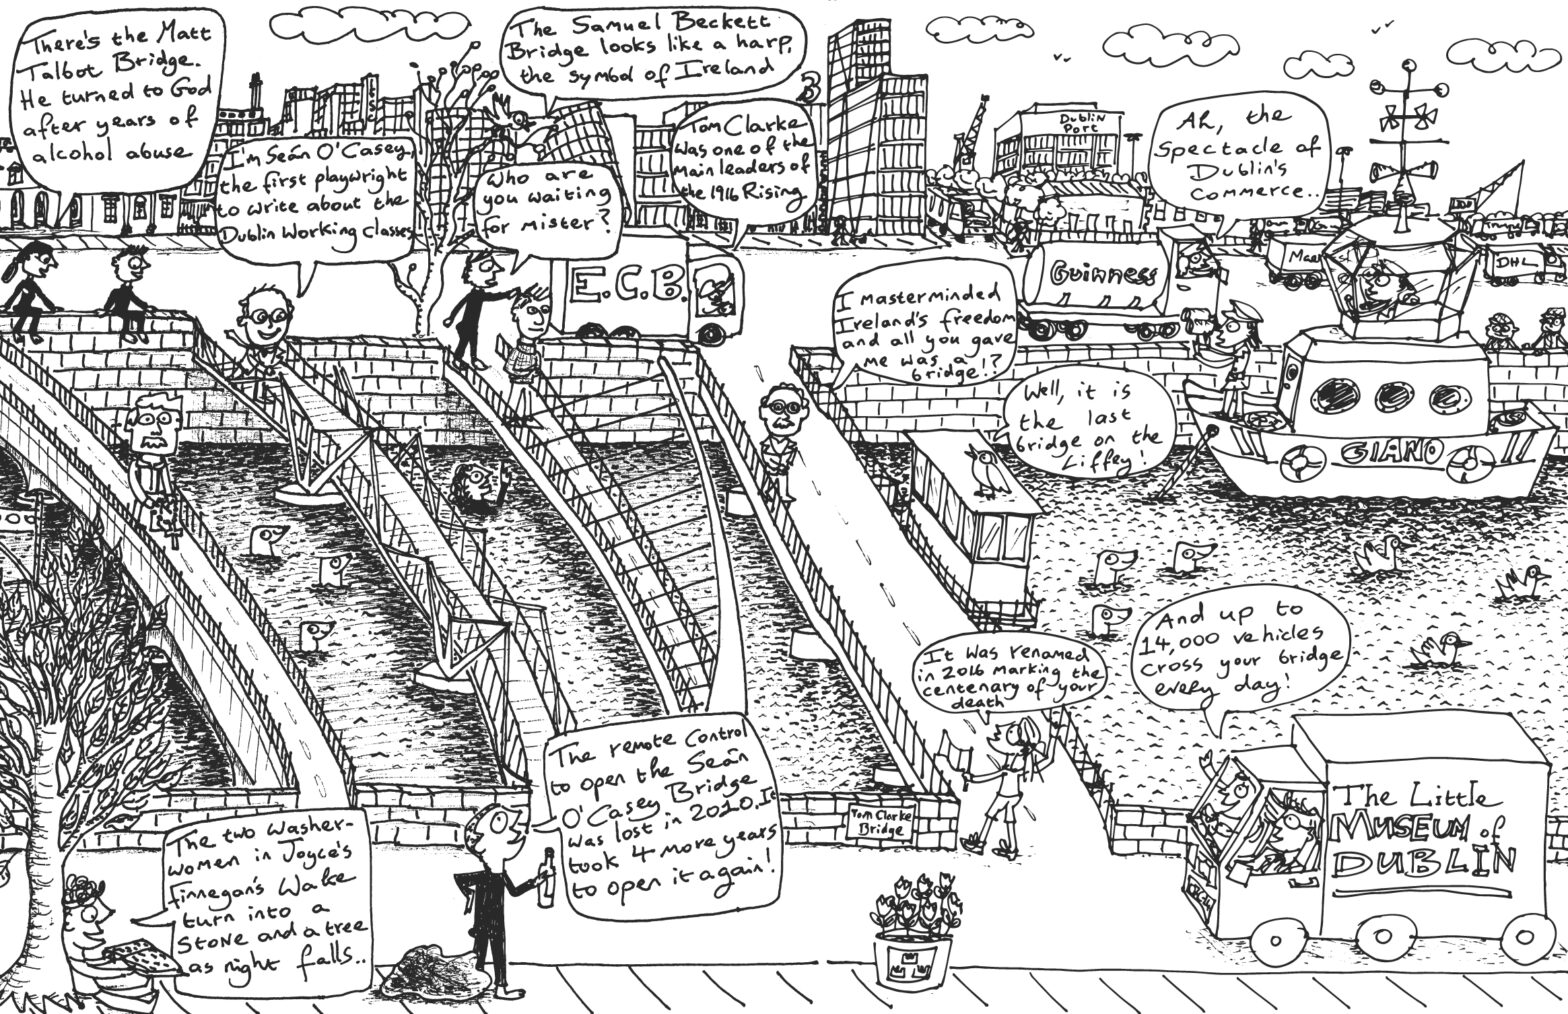 There's the Matt
Talbot Bridge.
He turned to God
after years of
alcohol abuse
The Samuel Beckett
Bridge looks like a harp,
the symbol of Ireland
I'm Seán O'Casey,
the first playwright
to write about the
Dublin Working Classes
Who are
you waiting
for mister?
Tom Clarke
was one of the
main leaders of
the 1916 Rising
Dublin
Port
Ah, the
Spectacle of
Dublin's
commerce..
E.C.B.
Guinness
DHL
I masterminded
Ireland's freedom
and all you gave
me was a
bridge!?
Well, it is
the last
bridge on the
Liffey!
GIANO
It was renamed
in 2016 marking the
centenary of your
death
And up to
14,000 vehicles
cross your bridge
every day!
The remote control
to open the Seán
O'Casey Bridge
was lost in 2010. It
took 4 more years
to open it again!
Tom Clarke
Bridge
The Little
MUSEUM of
DUBLIN
The two washer-
women in Joyce's
Finnegan's Wake
turn into a
stone and a tree
as night falls..